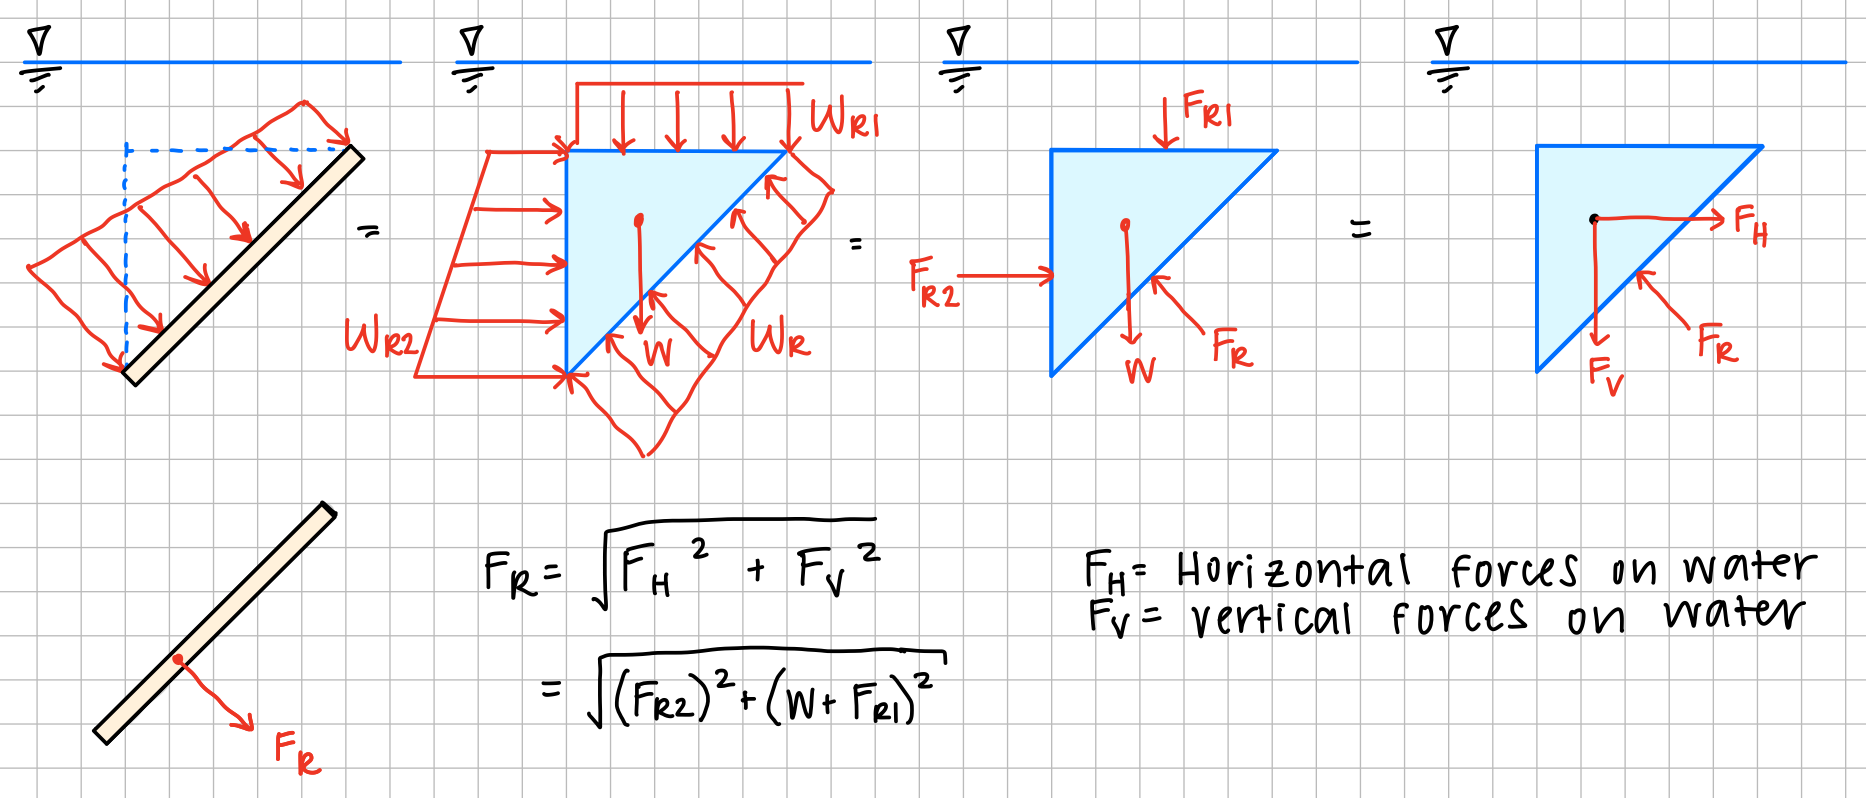 W_R1
=
W_R2
W
W_R
=
F_R1
F_R2
W
F_R
=
F_H
F_V
F_R
F_R
F_R = √(F_H² + F_V²)
= √((F_R2)² + (W + F_R1)²)
F_H = Horizontal forces on water
F_V = vertical forces on water